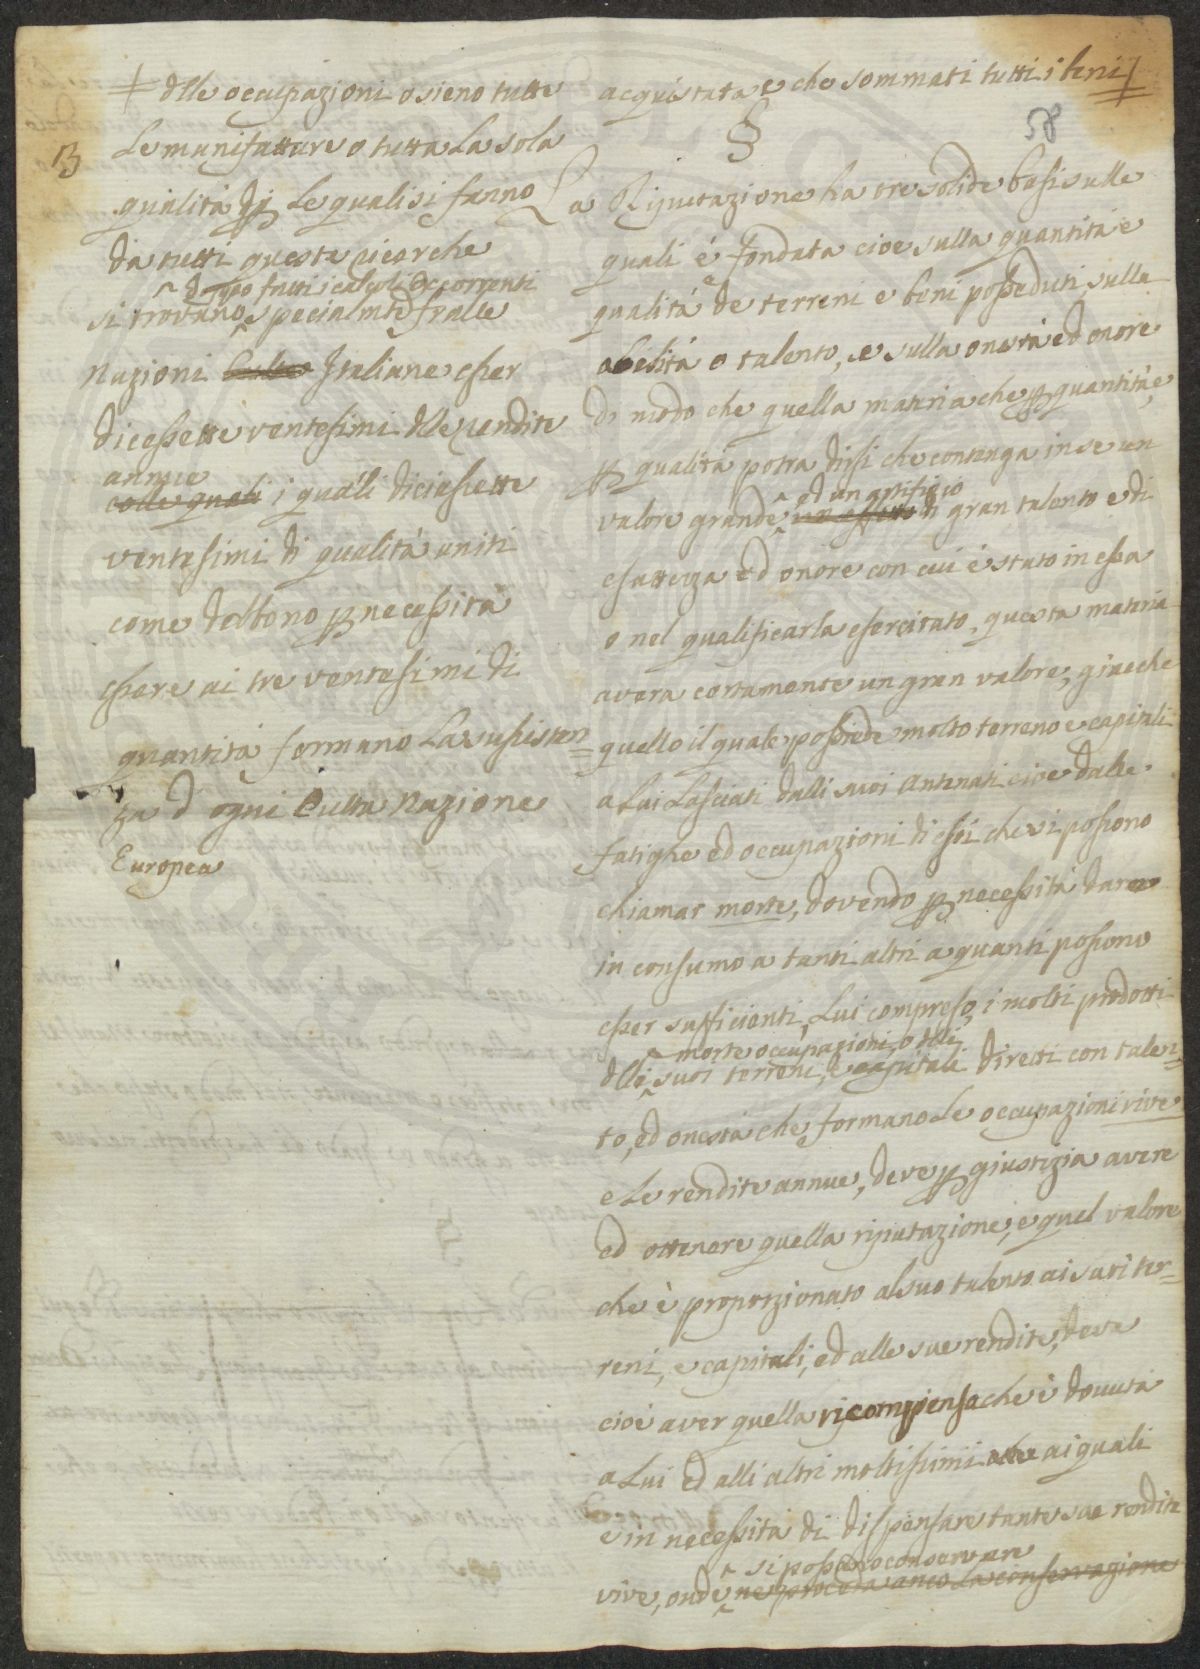 + dlle occupazioni o sieno tutte
B le manifatture o tutta la sola
qualità p le quali si fanno
da tutti queste ricerche
dopo fatti i calcoli occorrenti
si trovano specialmte fralle
Nazioni Italiane esser
dicessette ventesimi dlle rendite
annue
colle quali i quali diciassette
ventesimi di qualità uniti
come debbono p necessità
essere ai tre ventesimi di
quantità formano la sussisten=
za d ogni Culta Nazione
Europea
acquistata e che sommati tutti i beni
58
§
La Riputazione ha tre solide basi sulle
quali é fondata cioe sulla quantità e
qualitá de terreni e beni posseduti sulla
abelitá o talento, e sulla onestà ed onore
di modo che quella materia che p quantità, e
p qualità potra dirsi che contenga in se un
ed un artificio
valore grande un effetto di gran talento e di
esattezza ed onore con cui é stato in essa
o nel qualificarla esercitato, questa materia
avera certamente un gran valore, giacche
quello il quale possiede molto terreno e capitali
a Lui Lasciati dalli suoi Antenati cioe dalle
fatighe ed occupazioni di essi che si possono
chiamar morte, dovendo p necessità dare
in consumo a tanti altri a quanti possono
esser sufficienti, Lui compreso, i molti prodotti
morte occupazioni, o dlli
dlli suoi terreni, e capitali diretti con talen=
to, ed onestà che formano Le occupazioni vive
e Le rendite annue, deve p giustizia avere
ed ottenere quella riputazione, e quel valore
che è proporzionato al suo talento ai suoi ter=
reni, e capitali, ed alle sue rendite, deve
cioè aver quella ricompensa che è dovuta
a Lui ed alli altri moltissimi ai quali
e in necessità di dispensare tante sue rendite
si possano conservare
vive, onde ne proceda anco La conservazione